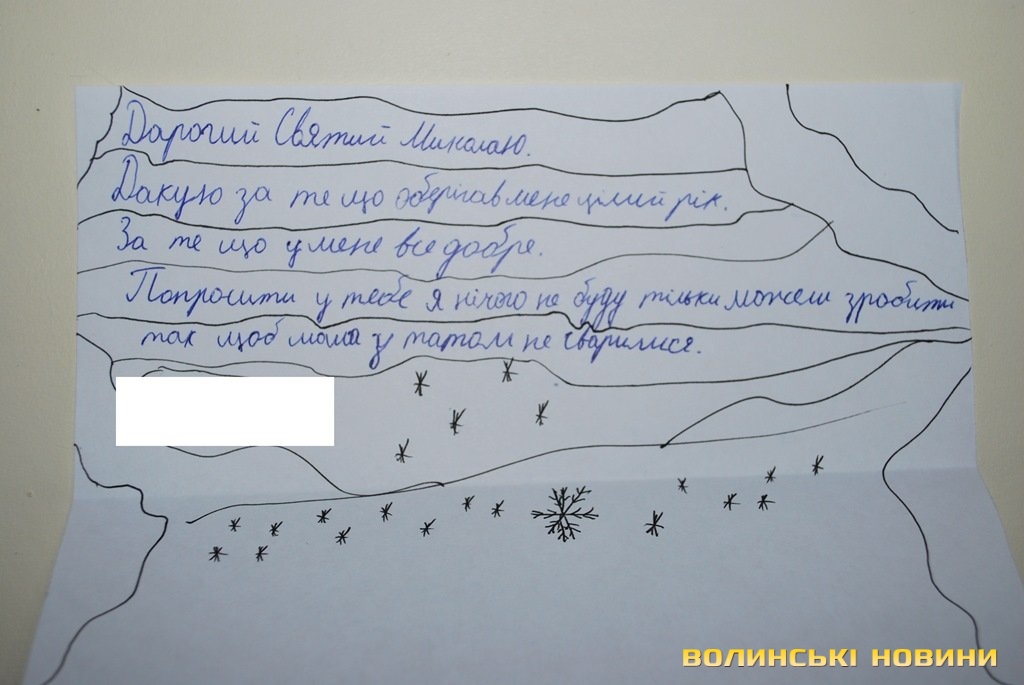 Дарогий Святий Миколаю.
Дакую за те що оберігав мене цілий рік.
За те що у мене все добре.
Попросити у тебе я нічого не буду тільки можеш зробити
так щоб мама з татом не сварилися.
ВОЛИНСЬКІ НОВИНИ